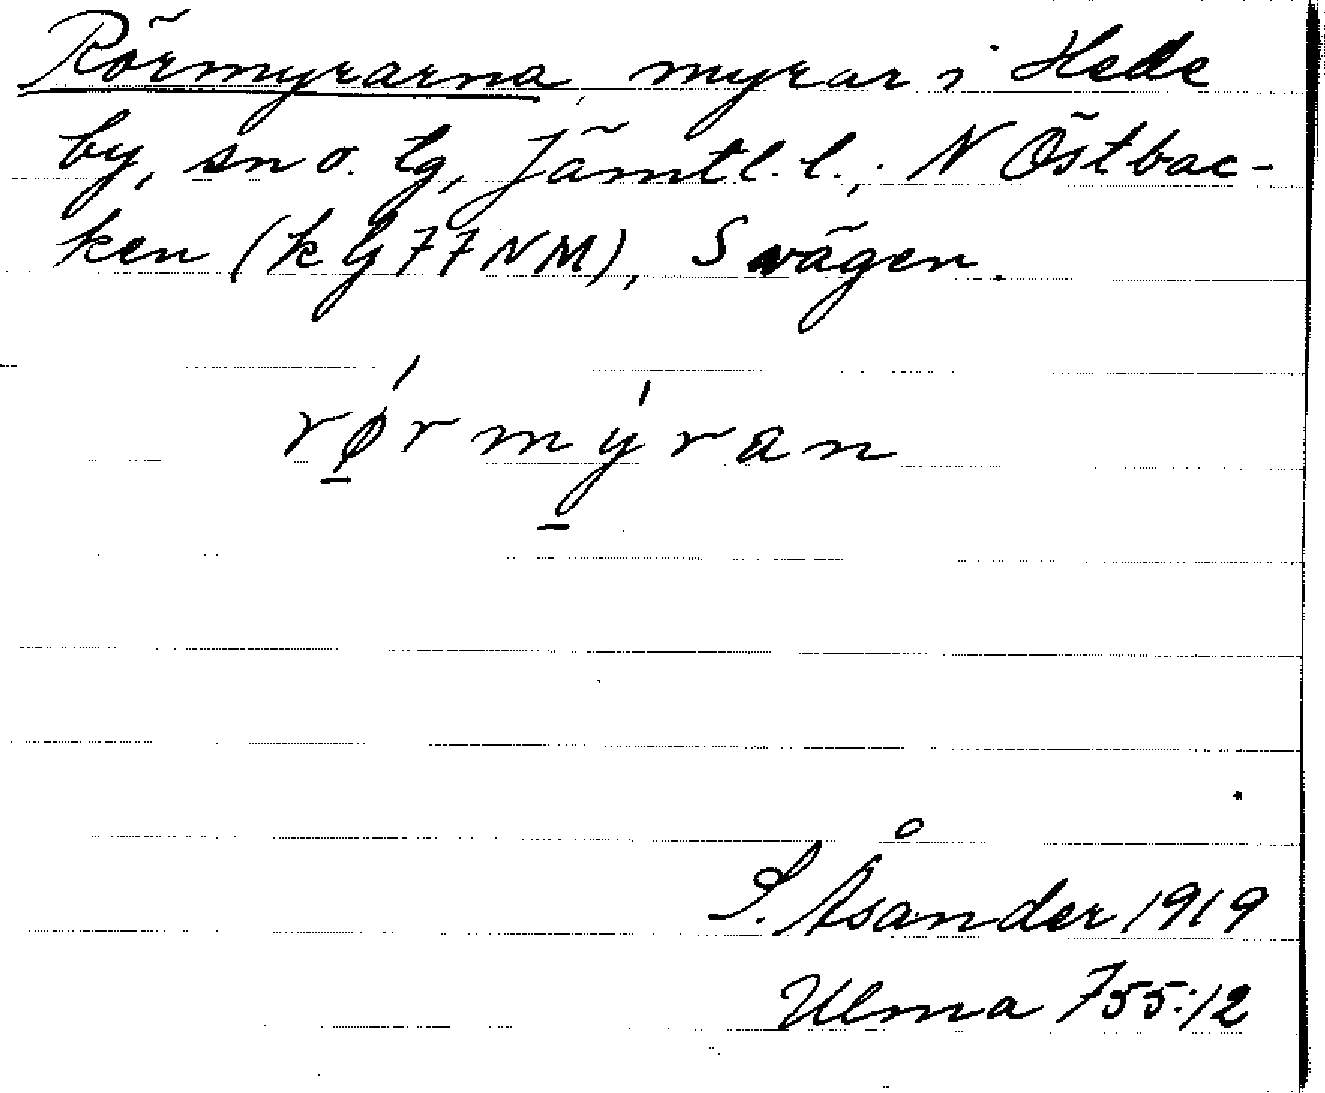 Rörmyrarna, myrar i Hede
by, sn o. tg, Jämtl. l., N Östbac-
ken (k Gj 77 NM), S vägen.
rǿ̱rmý̱ran
S. Åsander 1919
Ulma 755:12